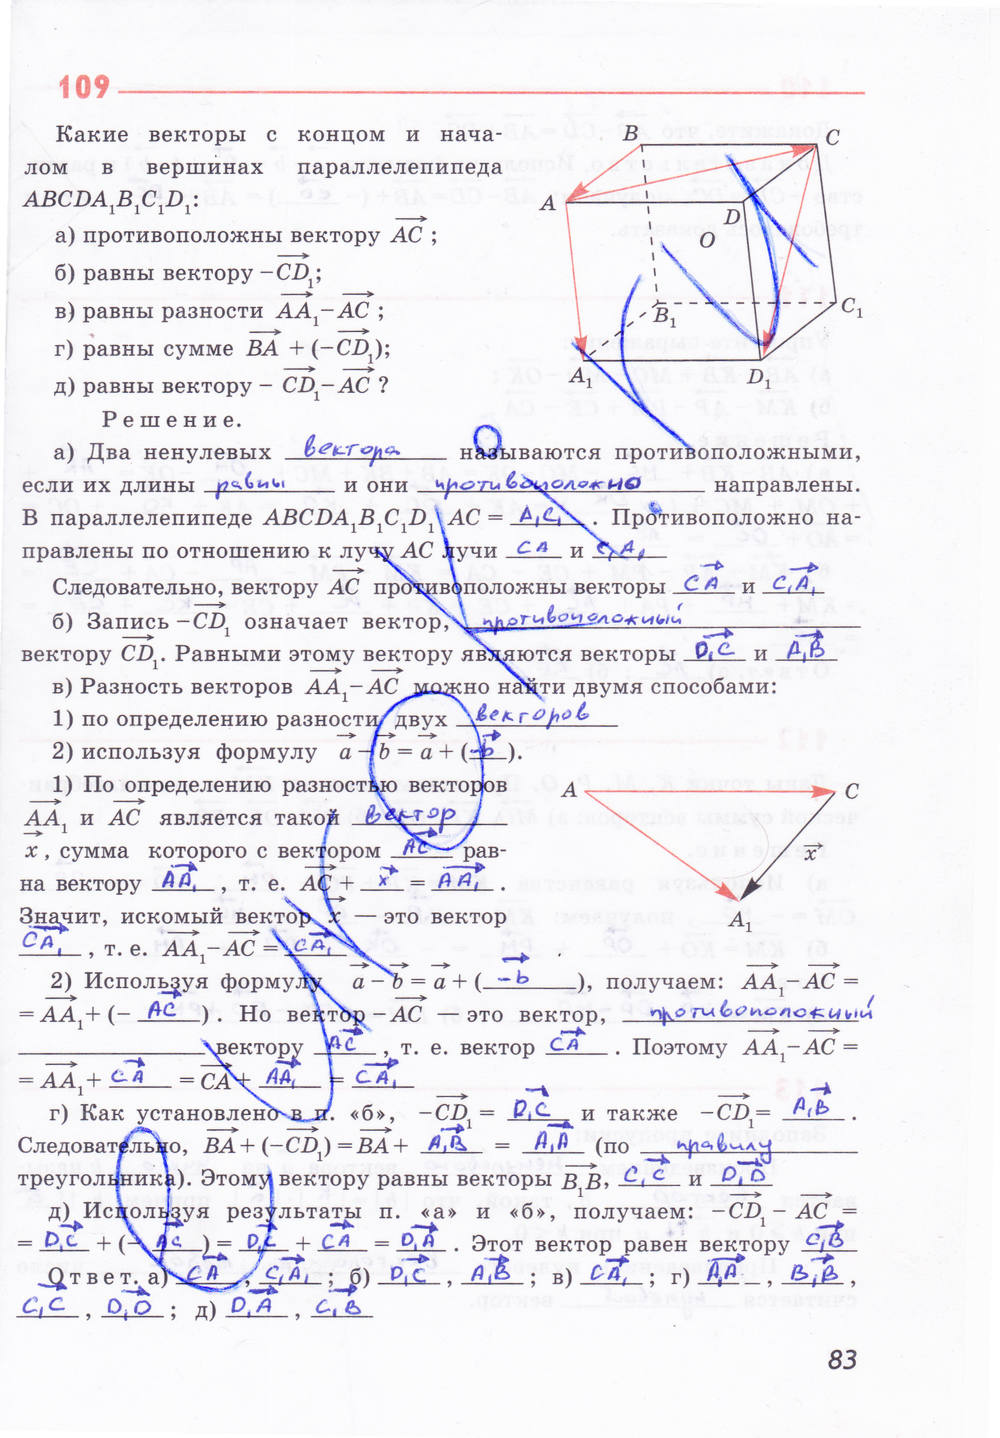 109
Какие векторы с концом и нача-
лом в вершинах параллелепипеда
ABCDA₁B₁C₁D₁:
а) противоположны вектору AC ;
б) равны вектору −CD₁;
в) равны разности AA₁−AC ;
г) равны сумме BA + (−CD₁);
д) равны вектору − CD₁−AC ?
B
C
A
D
O
B₁
C₁
A₁
D₁
Решение.
а) Два ненулевых вектора называются противоположными,
если их длины равны и они противоположно направлены.
В параллелепипеде ABCDA₁B₁C₁D₁ AC = A₁C₁ . Противоположно на-
правлены по отношению к лучу AC лучи CA и C₁A₁
Следовательно, вектору AC противоположны векторы CA и C₁A₁
б) Запись −CD₁ означает вектор, противоположный
вектору CD₁. Равными этому вектору являются векторы D₁C и A₁B
в) Разность векторов AA₁−AC можно найти двумя способами:
1) по определению разности двух векторов
2) используя формулу a − b = a + (−b).
1) По определению разностью векторов
AA₁ и AC является такой вектор
x, сумма которого с вектором AC рав-
на вектору AA₁ , т. е. AC + x = AA₁ .
Значит, искомый вектор x — это вектор
CA₁ , т. е. AA₁−AC = CA₁
A
C
x
A₁
2) Используя формулу a − b = a + ( −b ), получаем: AA₁−AC =
= AA₁+ (− AC ). Но вектор −AC — это вектор, противоположный
вектору AC , т. е. вектор CA . Поэтому AA₁−AC =
= AA₁+ CA = CA + AA₁ = CA₁
г) Как установлено в п. «б», −CD₁ = D₁C и также −CD₁= A₁B .
Следовательно, BA+(−CD₁)=BA+ A₁B = A₁A (по правилу
треугольника). Этому вектору равны векторы B₁B, C₁C и D₁D
д) Используя результаты п. «а» и «б», получаем: −CD₁− AC =
= D₁C + (− AC ) = D₁C + CA = D₁A . Этот вектор равен вектору C₁B
Ответ. а) CA , C₁A₁ ; б) D₁C , A₁B ; в) CA₁ ; г) A₁A , B₁B ,
C₁C , D₁D ; д) D₁A , C₁B
83